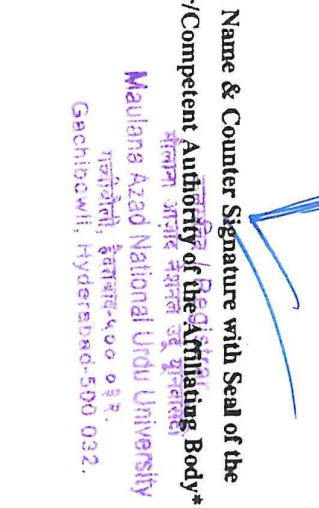 Name & Counter Signature with Seal of the
/Competent Authority of the Affiliating Body*
/ Registrar
मौलाना आज़ाद नेशनल उर्दू यूनिवर्सिटी
Maulana Azad National Urdu University
गच्चीबौली, हैदराबाद-५०० ०३२.
Gachibowli, Hyderabad-500 032.